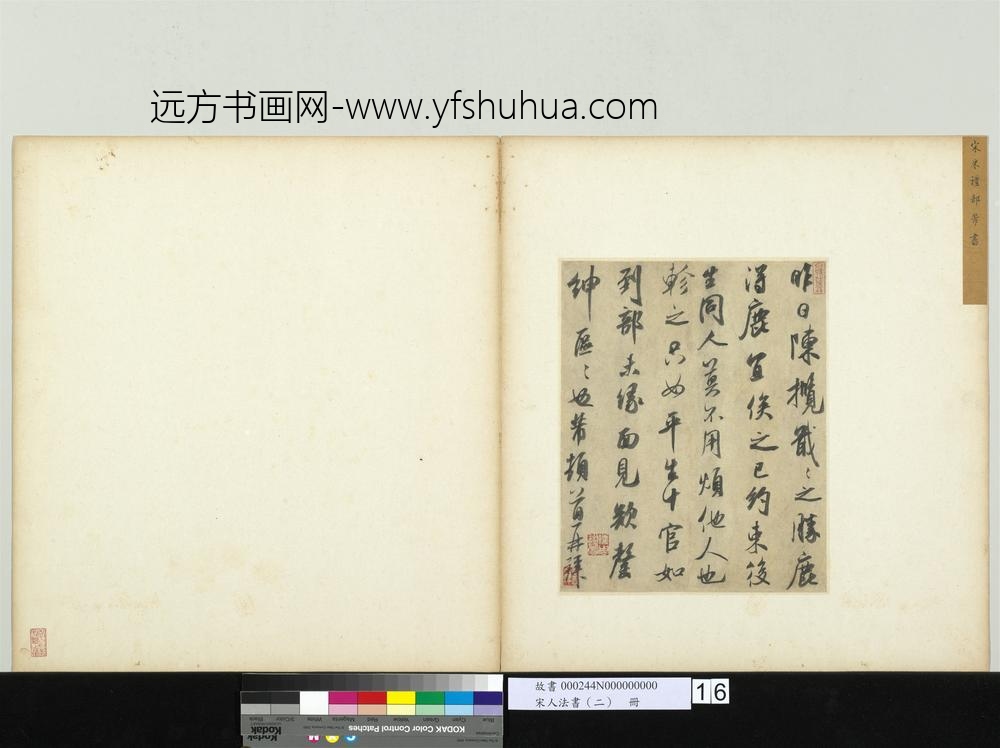 远方书画网-www.yfshuhua.com
宋米禮部芾書
昨日陳攬戢〻之勝鹿
得鹿宜俟之已約束後
生同人莫不用煩他人也
軫之只如平生十官如
到部未缘面見欵罄
紳區〻也芾頓首再拜
故書 000244N000000000
宋人法書（二） 冊
16
KODAK Color Control Patches
Kodak
Blue
Cyan
Green
Yellow
Red
Magenta
White
3/Color
Black